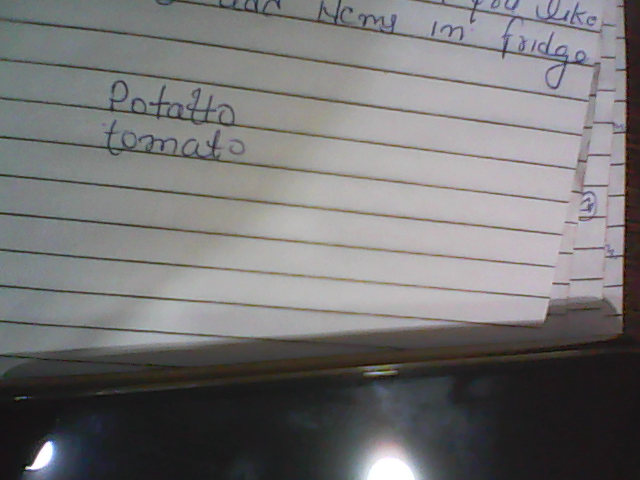 you like
and items in fridge
Potatto
tomato